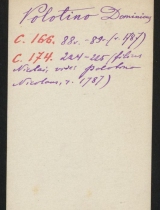 Polotino Dominicus
C. 166. 88v. - 89 (v. 1787)
C. 174. 224 - 225 (filius
Nicolai, vide: Polotino
Nicolaus, v. 1787)